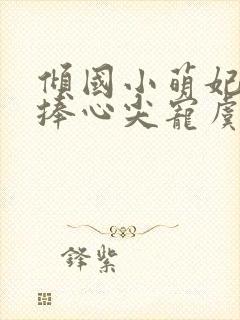 傾國小萌妃
捧心尖寵虞
鋒紫